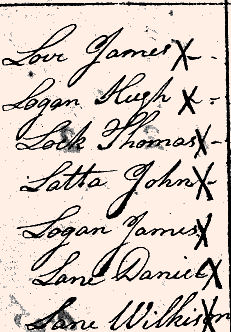 Love James X -
Logan Hugh X -
Lock Thomas X -
Latta John X -
Logan James X
Lane Daniel X
Lane Wilkison X